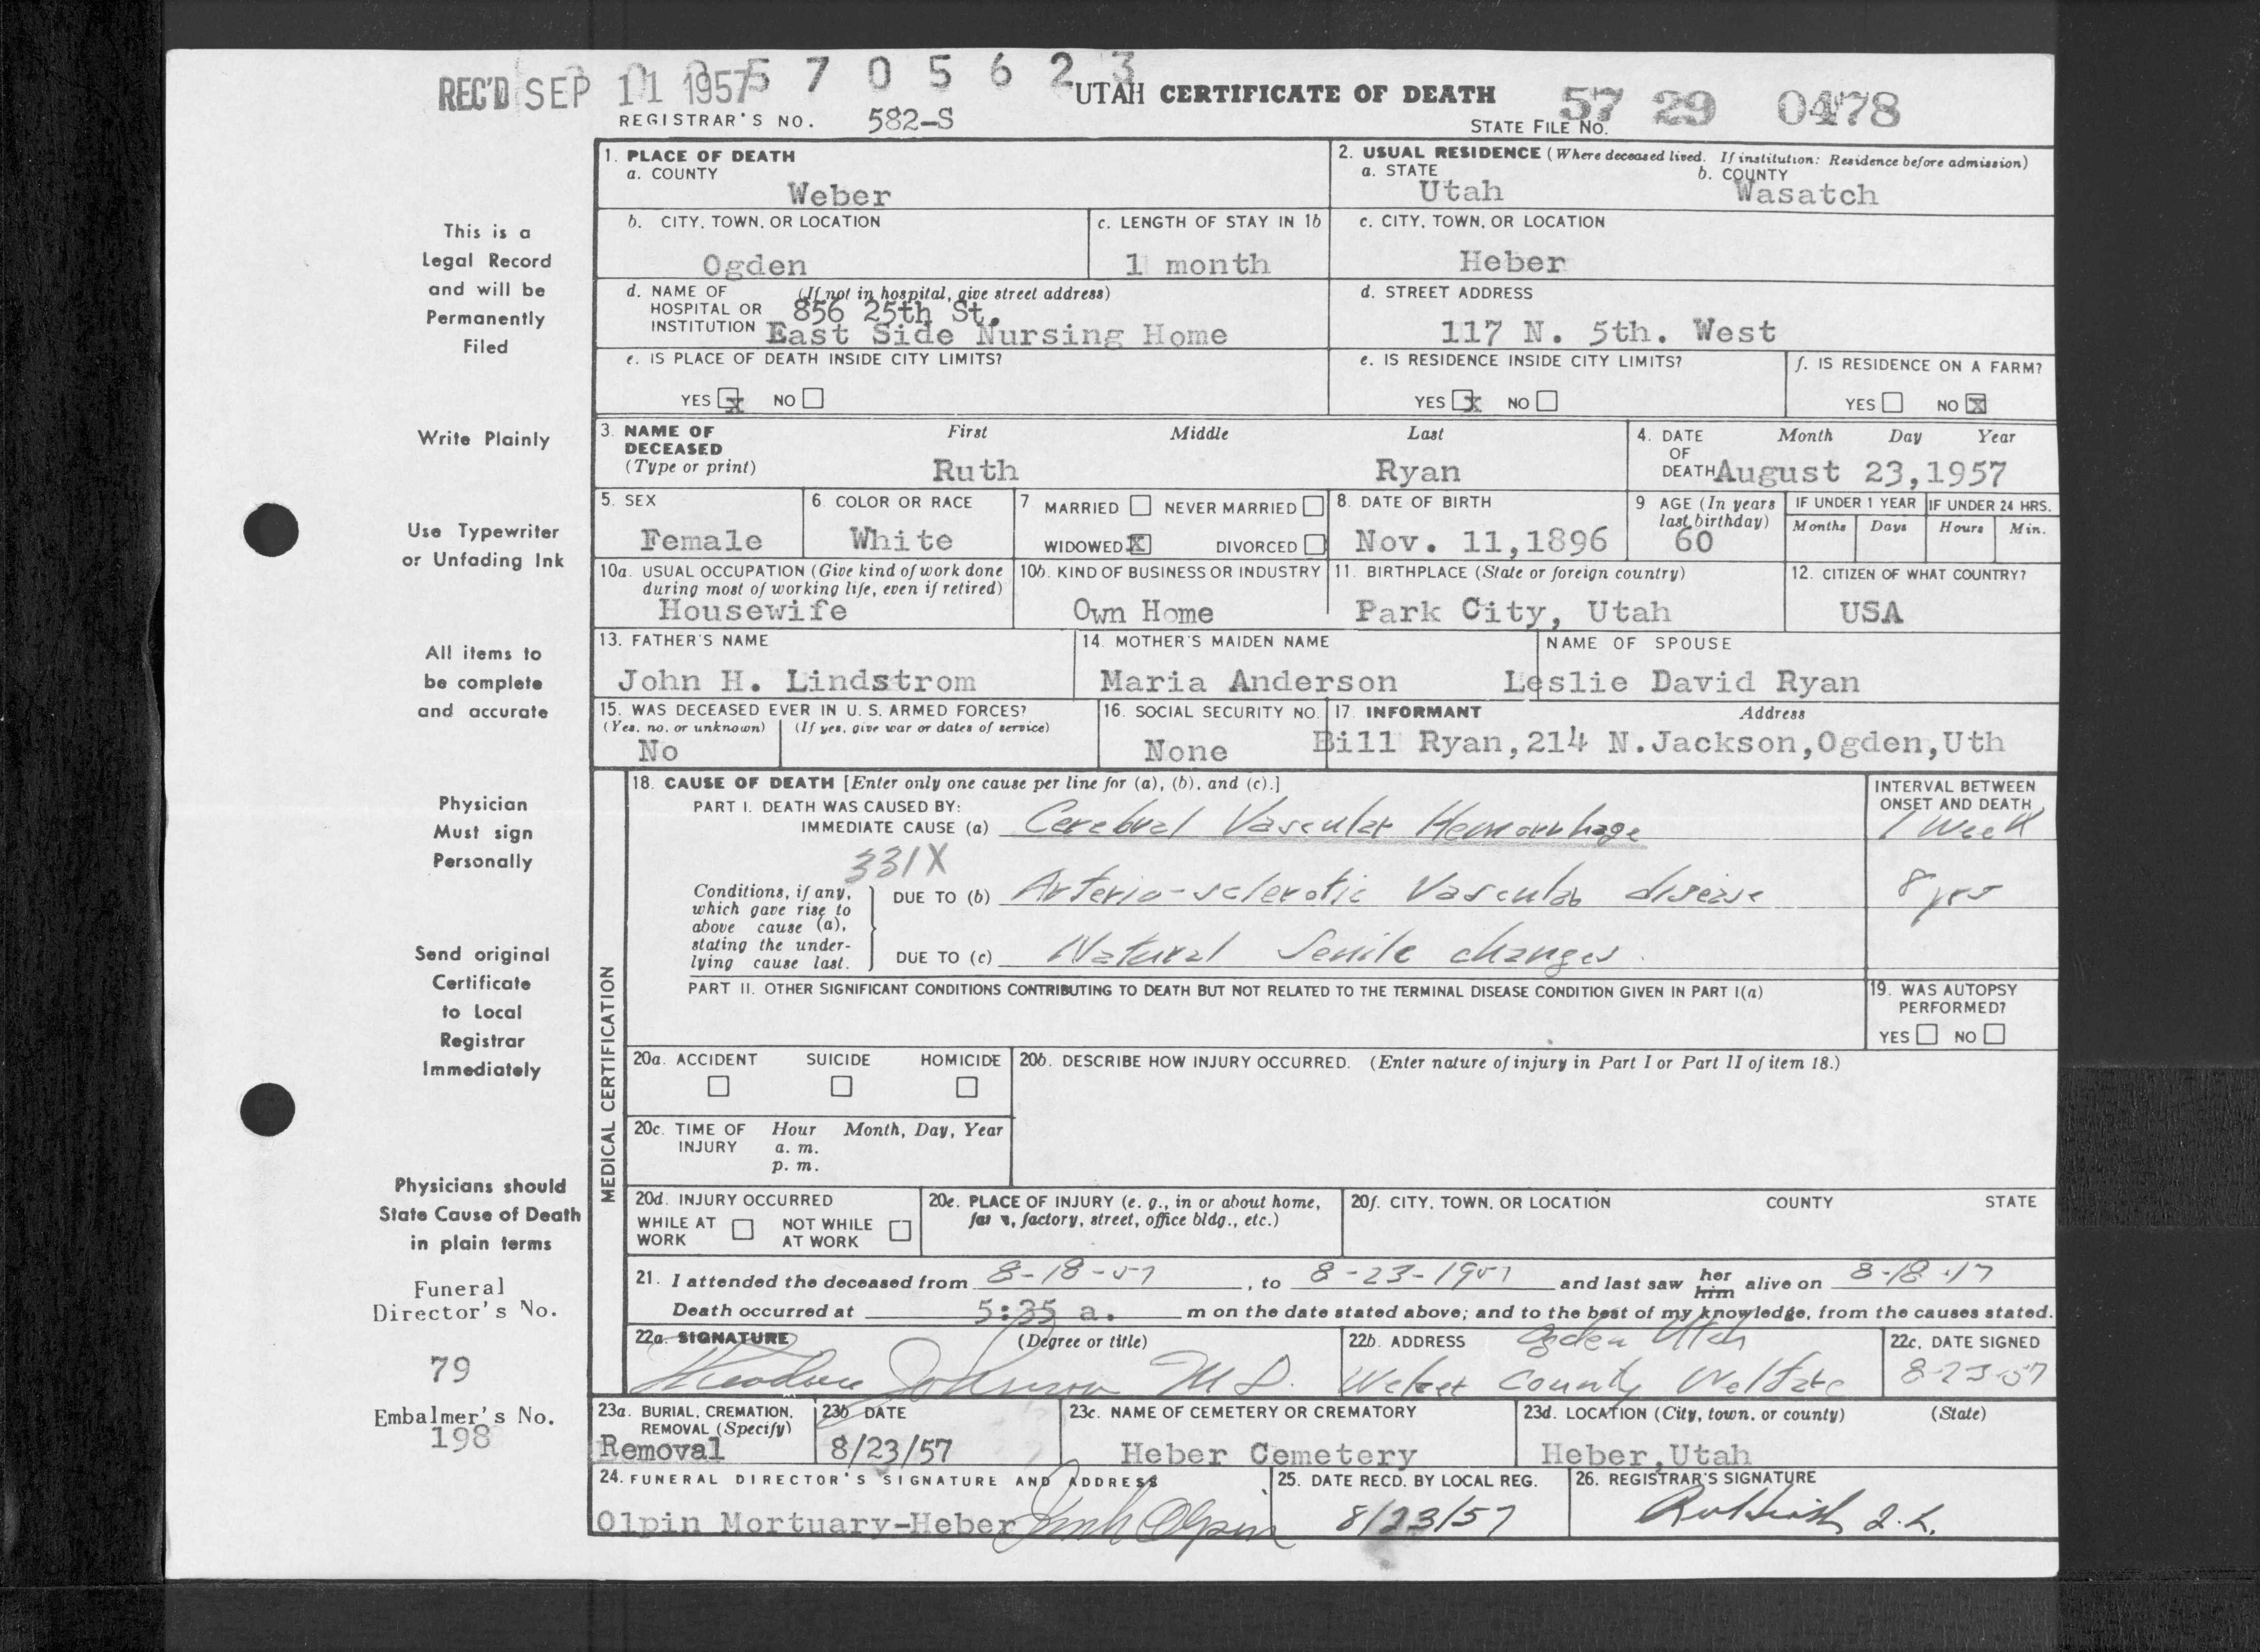 REC'D SEP 11 1957 5 7 0 5 6 2 3
UTAH CERTIFICATE OF DEATH
57 29 0478
REGISTRAR'S NO. 582-S
STATE FILE NO.
1. PLACE OF DEATH
a. COUNTY
Weber
2. USUAL RESIDENCE (Where deceased lived. If institution: Residence before admission)
a. STATE b. COUNTY
Utah Wasatch
b. CITY, TOWN, OR LOCATION
Ogden
c. LENGTH OF STAY IN 1b
1 month
c. CITY, TOWN, OR LOCATION
Heber
d. NAME OF HOSPITAL OR INSTITUTION (If not in hospital, give street address)
856 25th St.
East Side Nursing Home
d. STREET ADDRESS
117 N. 5th. West
e. IS PLACE OF DEATH INSIDE CITY LIMITS?
YES x NO
e. IS RESIDENCE INSIDE CITY LIMITS?
YES x NO
f. IS RESIDENCE ON A FARM?
YES NO x
3. NAME OF DECEASED (Type or print)
First Middle Last
Ruth Ryan
4. DATE OF DEATH Month Day Year
August 23,1957
5. SEX
Female
6. COLOR OR RACE
White
7 MARRIED NEVER MARRIED
WIDOWED X DIVORCED
8. DATE OF BIRTH
Nov. 11,1896
9 AGE (In years last birthday)
60
IF UNDER 1 YEAR IF UNDER 24 HRS.
Months Days Hours Min.
10a. USUAL OCCUPATION (Give kind of work done during most of working life, even if retired)
Housewife
10b. KIND OF BUSINESS OR INDUSTRY
Own Home
11. BIRTHPLACE (State or foreign country)
Park City, Utah
12. CITIZEN OF WHAT COUNTRY?
USA
13. FATHER'S NAME
John H. Lindstrom
14. MOTHER'S MAIDEN NAME
Maria Anderson
NAME OF SPOUSE
Leslie David Ryan
15. WAS DECEASED EVER IN U. S. ARMED FORCES?
(Yes, no, or unknown) (If yes, give war or dates of service)
No
16. SOCIAL SECURITY NO.
None
17. INFORMANT Address
Bill Ryan,214 N.Jackson,Ogden,Uth
MEDICAL CERTIFICATION
18. CAUSE OF DEATH [Enter only one cause per line for (a), (b), and (c).]
INTERVAL BETWEEN ONSET AND DEATH
PART I. DEATH WAS CAUSED BY:
IMMEDIATE CAUSE (a) Cerebral Vascular Hemorrhage 1 Week
331X
Conditions, if any, which gave rise to above cause (a), stating the underlying cause last.
DUE TO (b) Arterio-sclerotic Vascular disease 8 yrs
DUE TO (c) Natural Senile changes.
PART II. OTHER SIGNIFICANT CONDITIONS CONTRIBUTING TO DEATH BUT NOT RELATED TO THE TERMINAL DISEASE CONDITION GIVEN IN PART I(a)
19. WAS AUTOPSY PERFORMED?
YES NO
20a. ACCIDENT SUICIDE HOMICIDE
20b. DESCRIBE HOW INJURY OCCURRED. (Enter nature of injury in Part I or Part II of item 18.)
20c. TIME OF INJURY Hour Month, Day, Year
a. m.
p. m.
20d. INJURY OCCURRED
WHILE AT WORK NOT WHILE AT WORK
20e. PLACE OF INJURY (e. g., in or about home, factory, street, office bldg., etc.)
20f. CITY, TOWN, OR LOCATION COUNTY STATE
21. I attended the deceased from 8-18-57, to 8-23-1957 and last saw her him alive on 8-18-57
Death occurred at 5:35 a. m on the date stated above; and to the best of my knowledge, from the causes stated.
22a. SIGNATURE (Degree or title)
Theodore Johnson M D.
22b. ADDRESS Ogden Utah
Weber County Welfare
22c. DATE SIGNED
8-23-57
23a. BURIAL, CREMATION, REMOVAL (Specify)
Removal
23b DATE
8/23/57
23c. NAME OF CEMETERY OR CREMATORY
Heber Cemetery
23d. LOCATION (City, town, or county) (State)
Heber,Utah
24. FUNERAL DIRECTOR'S SIGNATURE AND ADDRESS
Olpin Mortuary-Heber Olpin
25. DATE RECD. BY LOCAL REG.
8/23/57
26. REGISTRAR'S SIGNATURE
This is a
Legal Record
and will be
Permanently
Filed
Write Plainly
Use Typewriter
or Unfading Ink
All items to
be complete
and accurate
Physician
Must sign
Personally
Send original
Certificate
to Local
Registrar
Immediately
Physicians should
State Cause of Death
in plain terms
Funeral
Director's No.
79
Embalmer's No.
198